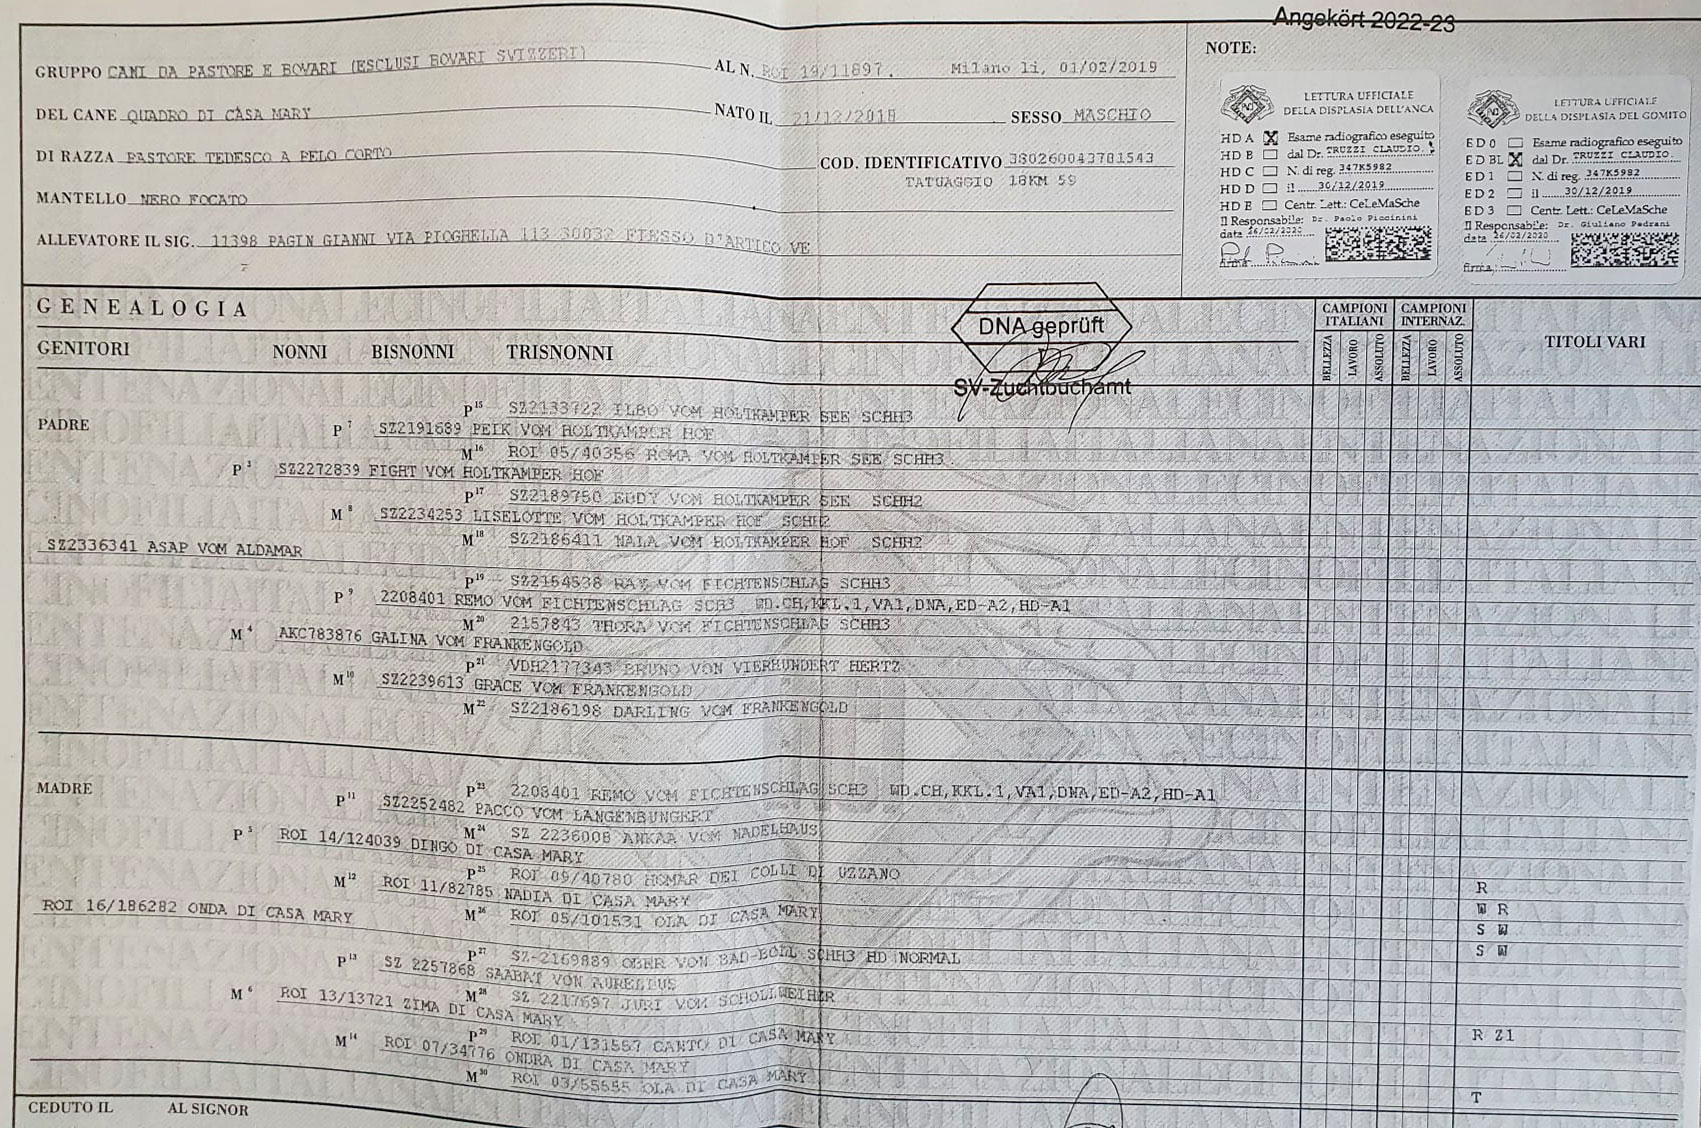 Angekört 2022-23
NOTE:
GRUPPO CANI DA PASTORE E BOVARI (ESCLUSI BOVARI SVIZZERI)
AL N. ROI 19/11897. Milano li, 01/02/2019
DEL CANE QUADRO DI CASA MARY
NATO IL 21/12/2018 SESSO MASCHIO
DI RAZZA PASTORE TEDESCO A PELO CORTO
COD. IDENTIFICATIVO 380260043781543
TATUAGGIO 18KM 59
MANTELLO NERO FOCATO
ALLEVATORE IL SIG. 11398 PAGIN GIANNI VIA PIOGHELLA 113 30032 FIESSO D'ARTICO VE
LETTURA UFFICIALE
DELLA DISPLASIA DELL'ANCA
HD A X Esame radiografico eseguito
HD B dal Dr. TRUZZI CLAUDIO.
HD C N. di reg. 347K5982
HD D il 30/12/2019
HD E Centr. Lett.: CeLeMaSche
Il Responsabile: Dr. Paolo Piccinini
data 26/02/2020
firma
LETTURA UFFICIALE
DELLA DISPLASIA DEL GOMITO
ED 0 Esame radiografico eseguito
ED BL X dal Dr. TRUZZI CLAUDIO.
ED 1 N. di reg. 347K5982
ED 2 il 30/12/2019
ED 3 Centr. Lett.: CeLeMaSche
Il Responsabile: Dr. Giuliano Pedrani
data 26/02/2020
firma
GENEALOGIA
DNA geprüft
SV-Zuchtbuchamt
GENITORI NONNI BISNONNI TRISNONNI
CAMPIONI ITALIANI
CAMPIONI INTERNAZ.
TITOLI VARI
BELLEZZA LAVORO ASSOLUTO BELLEZZA LAVORO ASSOLUTO
P15 SZ2133722 ILBO VOM HOLTKAMPER SEE SCHH3
PADRE
P7 SZ2191689 PEIK VOM HOLTKAMPER HOF
M16 ROI 05/40356 ROMA VOM HOLTKAMPER SEE SCHH3
P3 SZ2272839 FIGHT VOM HOLTKAMPER HOF
P17 SZ2189750 EDDY VOM HOLTKAMPER SEE SCHH2
M8 SZ2234253 LISELOTTE VOM HOLTKAMPER HOF SCHH2
M18 SZ2186411 NALA VOM HOLTKAMPER HOF SCHH2
SZ2336341 ASAP VOM ALDAMAR
P19 SZ2154538 RAY VOM FICHTENSCHLAG SCHH3
P9 2208401 REMO VOM FICHTENSCHLAG SCH3 WD.CH,KKL.1,VA1,DNA,ED-A2,HD-A1
M20 2157843 THORA VOM FICHTENSCHLAG SCHH3
M4 AKC783876 GALINA VOM FRANKENGOLD
P21 VDH2177343 BRUNO VON VIERHUNDERT HERTZ
M10 SZ2239613 GRACE VOM FRANKENGOLD
M22 SZ2186198 DARLING VOM FRANKENGOLD
MADRE
P23 2208401 REMO VOM FICHTENSCHLAG SCH3 WD.CH,KKL.1,VA1,DNA,ED-A2,HD-A1
P11 SZ2252482 PACCO VOM LANGENBUNGERT
M24 SZ 2236008 ANKAA VOM NADELHAUS
P5 ROI 14/124039 DINGO DI CASA MARY
P25 ROI 09/40780 HOMAR DEI COLLI DI UZZANO
R
M12 ROI 11/82785 NADIA DI CASA MARY
W R
M26 ROI 05/101531 OLA DI CASA MARY
S W
ROI 16/186282 ONDA DI CASA MARY
S W
P27 SZ-2169889 OBER VON BAD-BOLL SCHH3 HD NORMAL
P13 SZ 2257868 SAABAT VON AURELIUS
M28 SZ 2217697 JURI VOM SCHOLLWEIHER
M6 ROI 13/13721 ZIMA DI CASA MARY
P29 ROI 01/131557 CANTO DI CASA MARY
R Z1
M14 ROI 07/34776 ONDRA DI CASA MARY
M30 ROI 03/55555 OLA DI CASA MARY
T
CEDUTO IL AL SIGNOR